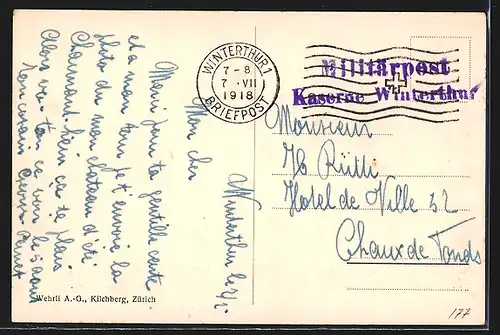 WINTERTHUR 1
7-8
7 . VII
1918
BRIEFPOST
Militärpost
Kaserne Winterthur
Winterthur le
Mon cher
Merci pour ta gentille carte
et a mon tour je t'envoie la
photo de mon chateau d'été
Charmant hein ça te plais
Alors
Monsieur
Hotel de Ville 32
Chaux de Fonds
Wehrli A.-G., Kilchberg, Zürich
177